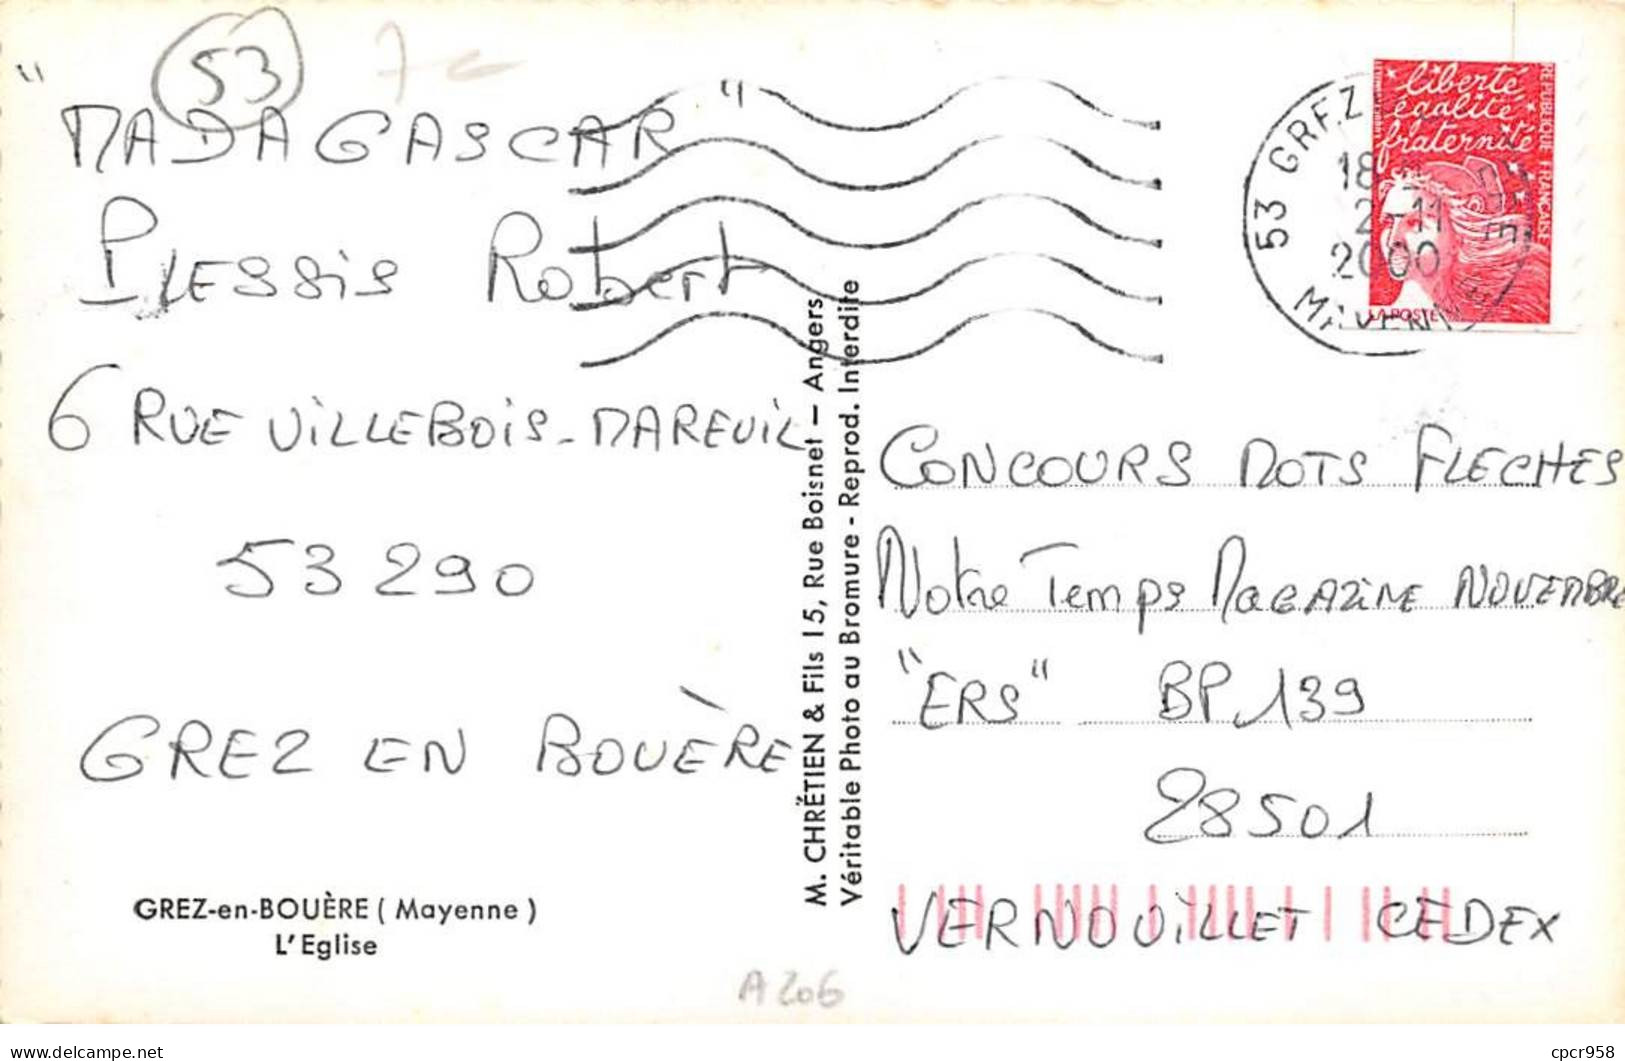 53
"MADAGASCAR"
Plessis Robert
6 RUE VILLEBOIS-MAREUIL
53290
GREZ EN BOUÈRE
GREZ-en-BOUÈRE ( Mayenne )
L'Eglise
M. CHRÉTIEN & Fils 15, Rue Boisnet — Angers
Véritable Photo au Bromure - Reprod. Interdite
liberté
égalité
fraternité
REPUBLIQUE FRANÇAISE
LA POSTE
53 GREZ
18
2-11
2000
MAYENNE
CONCOURS MOTS FLECHES
Notre Temps MAGAZINE NOVEMBRE
"ERS" BP 139
28501
VERNOUILLET CEDEX
A206
cpcr958